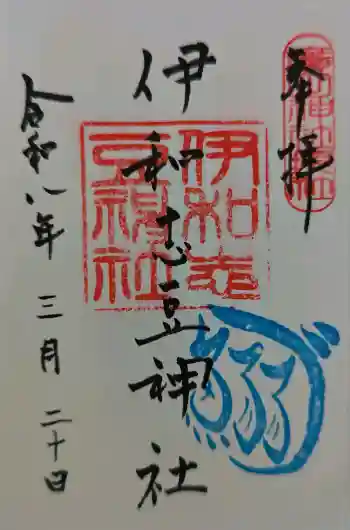 奉拝
伊和志豆神社
伊和志豆神社
令和八年 三月 二十日